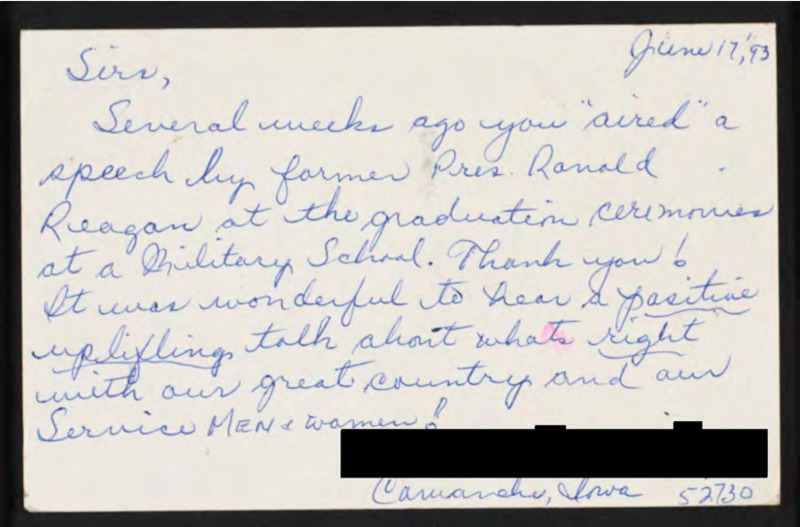 June 17,'93
Sirs,
Several weeks ago you "aired" a
speech by former Pres. Ronald
Reagan at the graduation ceremonies
at a Military School. Thank you!
It was wonderful to hear a positive
uplifting talk about whats right
with our great country and our
Service MEN & women!
Camanche, Iowa 52730